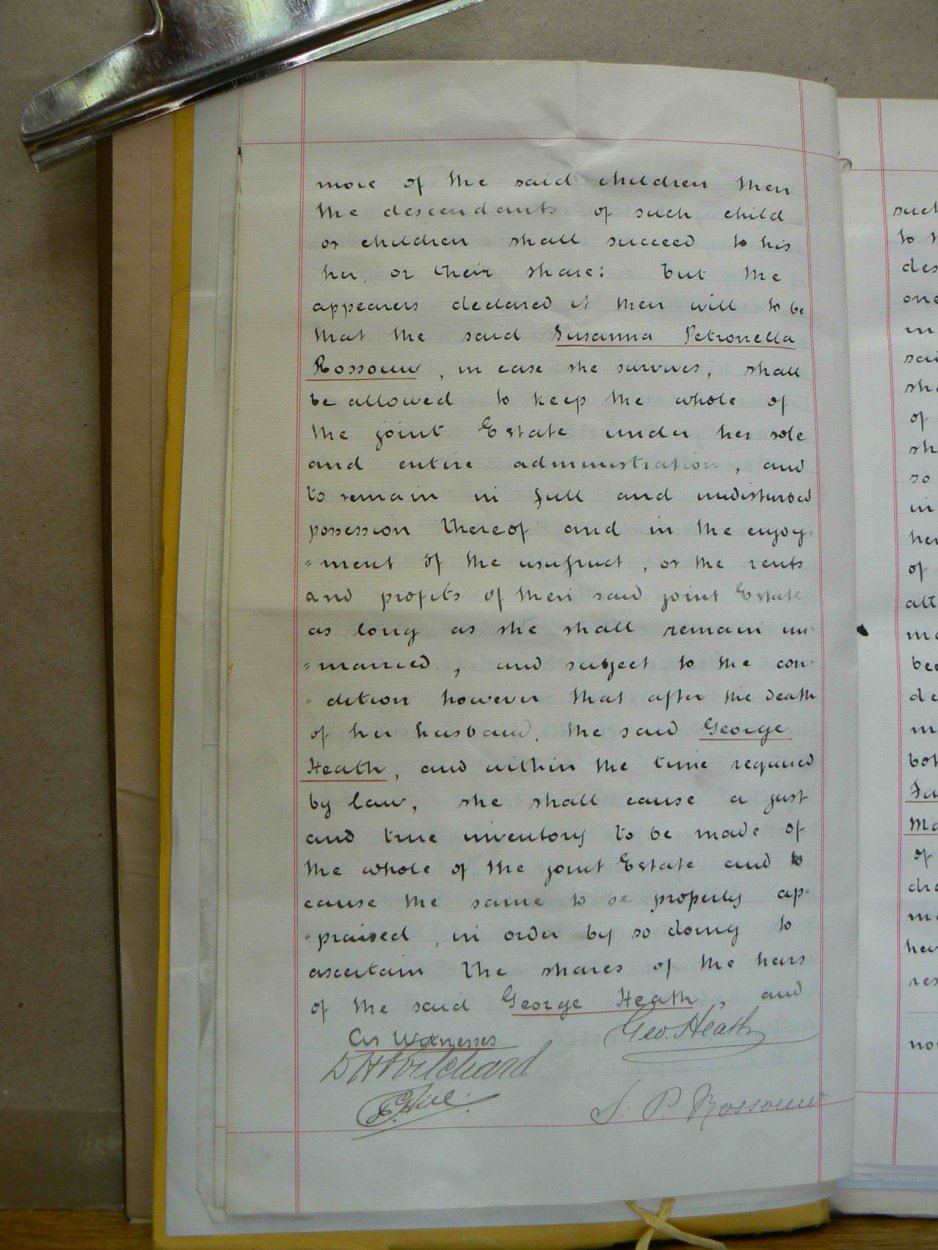 more of the said children then
the descendants of such child
or children shall succeed to his
her, or their share: but the
appearers declared it their will to be
that the said Susanna Petronella
Rossouw, in case she survives, shall
be allowed to keep the whole of
the joint Estate under her sole
and entire administration, and
to remain in full and undisturbed
possession thereof and in the enjoy-
"ment of the usufruct, or the rents
and profits of their said joint Estate
as long as she shall remain un-
"married, and subject to the con-
"dition however that after the death
of her husband, the said George
Heath, and within the time required
by law, she shall cause a just
and true inventory to be made of
the whole of the joint Estate and to
cause the same to be properly ap-
"praised, in order by so doing to
ascertain the shares of the heirs
of the said George Heath, and
As Witnesses
Geo. Heath
D H Pritchard
S. P. Rossouw
such
to t
des
one
in
said
sha
of
sh
so
in
her
of
alt
ma
bee
de
m
bot
Su
Ma
of
cha
ma
hei
res
no